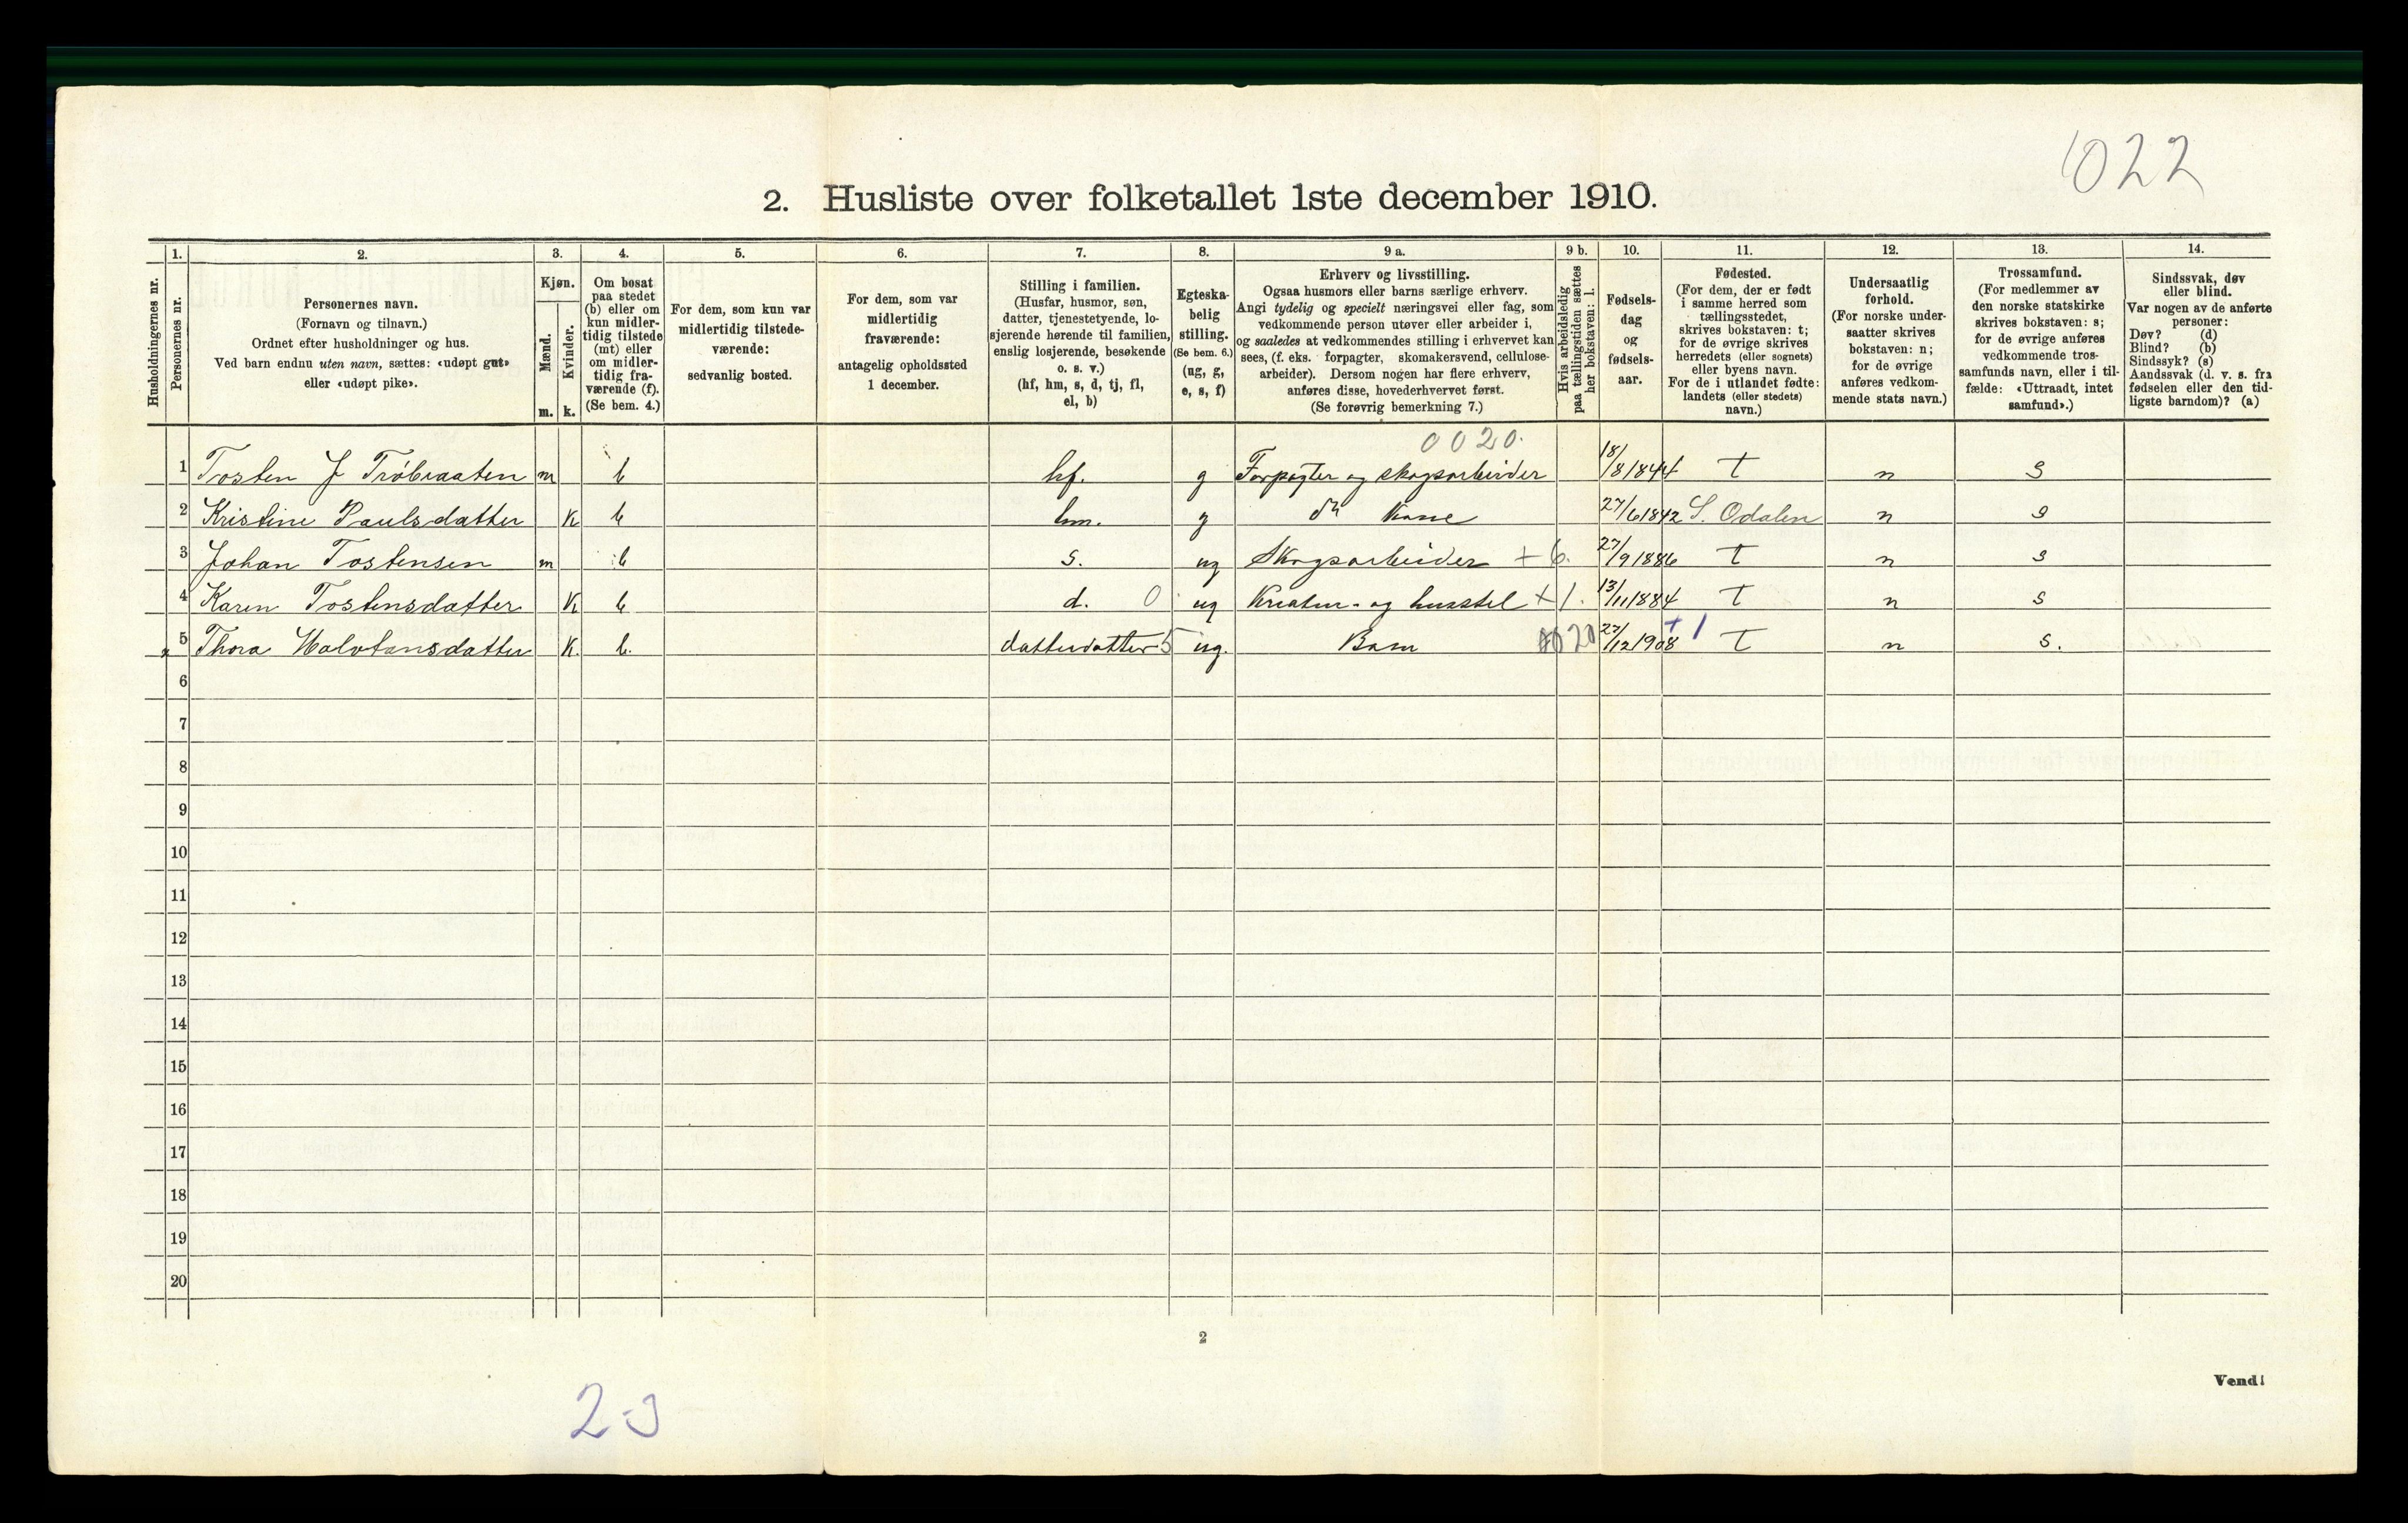 1022
2. Husliste over folketallet 1ste december 1910.
1. 2. 3. 4. 5. 6. 7. 8. 9 a. 9 b. 10. 11. 12. 13. 14.
Husholdningernes nr.
Personernes nr.
Personernes navn.
(Fornavn og tilnavn.)
Ordnet efter husholdninger og hus.
Ved barn endnu uten navn, sættes: «udøpt gut»
eller «udøpt pike».
Kjøn.
Mænd.
Kvinder.
m. k.
Om bosat
paa stedet
(b) eller om
kun midler-
tidig tilstede
(mt) eller
om midler-
tidig fra-
værende (f).
(Se bem. 4.)
For dem, som kun var
midlertidig tilstede-
værende:
sedvanlig bosted.
For dem, som var
midlertidig
fraværende:
antagelig opholdssted
1 december.
Stilling i familien.
(Husfar, husmor, søn,
datter, tjenestetyende, lo-
sjerende hørende til familien,
enslig losjerende, besøkende
o. s. v.)
(hf, hm, s, d, tj, fl,
el, b)
Egteska-
belig
stilling.
(Se bem. 6.)
(ug, g,
e, s, f)
Erhverv og livsstilling.
Ogsaa husmors eller barns særlige erhverv.
Angi tydelig og specielt næringsvei eller fag, som
vedkommende person utøver eller arbeider i,
og saaledes at vedkommendes stilling i erhvervet kan
sees, (f. eks. forpagter, skomakersvend, cellulose-
arbeider). Dersom nogen har flere erhverv,
anføres disse, hovederhvervet først.
(Se forøvrig bemerkning 7.)
Hvis arbeidsledig
paa tællingstiden sættes
her bokstaven: l.
Fødsels-
dag
og
fødsels-
aar.
Fødested.
(For dem, der er født
i samme herred som
tællingsstedet,
skrives bokstaven: t;
for de øvrige skrives
herredets (eller sognets)
eller byens navn.
For de i utlandet fødte:
landets (eller stedets)
navn.)
Undersaatlig
forhold.
(For norske under-
saatter skrives
bokstaven: n;
for de øvrige
anføres vedkom-
mende stats navn.)
Trossamfund.
(For medlemmer av
den norske statskirke
skrives bokstaven: s;
for de øvrige anføres
vedkommende tros-
samfunds navn, eller i til-
fælde: «Uttraadt, intet
samfund».)
Sindssvak, døv
eller blind.
Var nogen av de anførte
personer:
Døv? (d)
Blind? (b)
Sindssyk? (s)
Aandssvak (d. v. s. fra
fødselen eller den tid-
ligste barndom)? (a)
0020.
1 Tosten J Trøbraaten m b hf. g Forpagter og skogsarbeider 18/8 1844 t n s
2 Kristine Paulsdatter k b hm. g do Kone 27/6 1842 S. Odalen n s
3 Johan Tostensen m b s. ug Skogsarbeider + 6. 27/9 1886 t n s
4 Karen Tostensdatter k b d. 0 ug Kreatur- og husstel + 1. 13/11 1884 t n s
5 Thora Halvorsdatter k. b. datterdatter 5 ug. Barn 020 27/12 1908 + 1 t n s.
6
7
8
9
10
11
12
13
14
15
16
17
18
19
20
2
Vend!
2-3